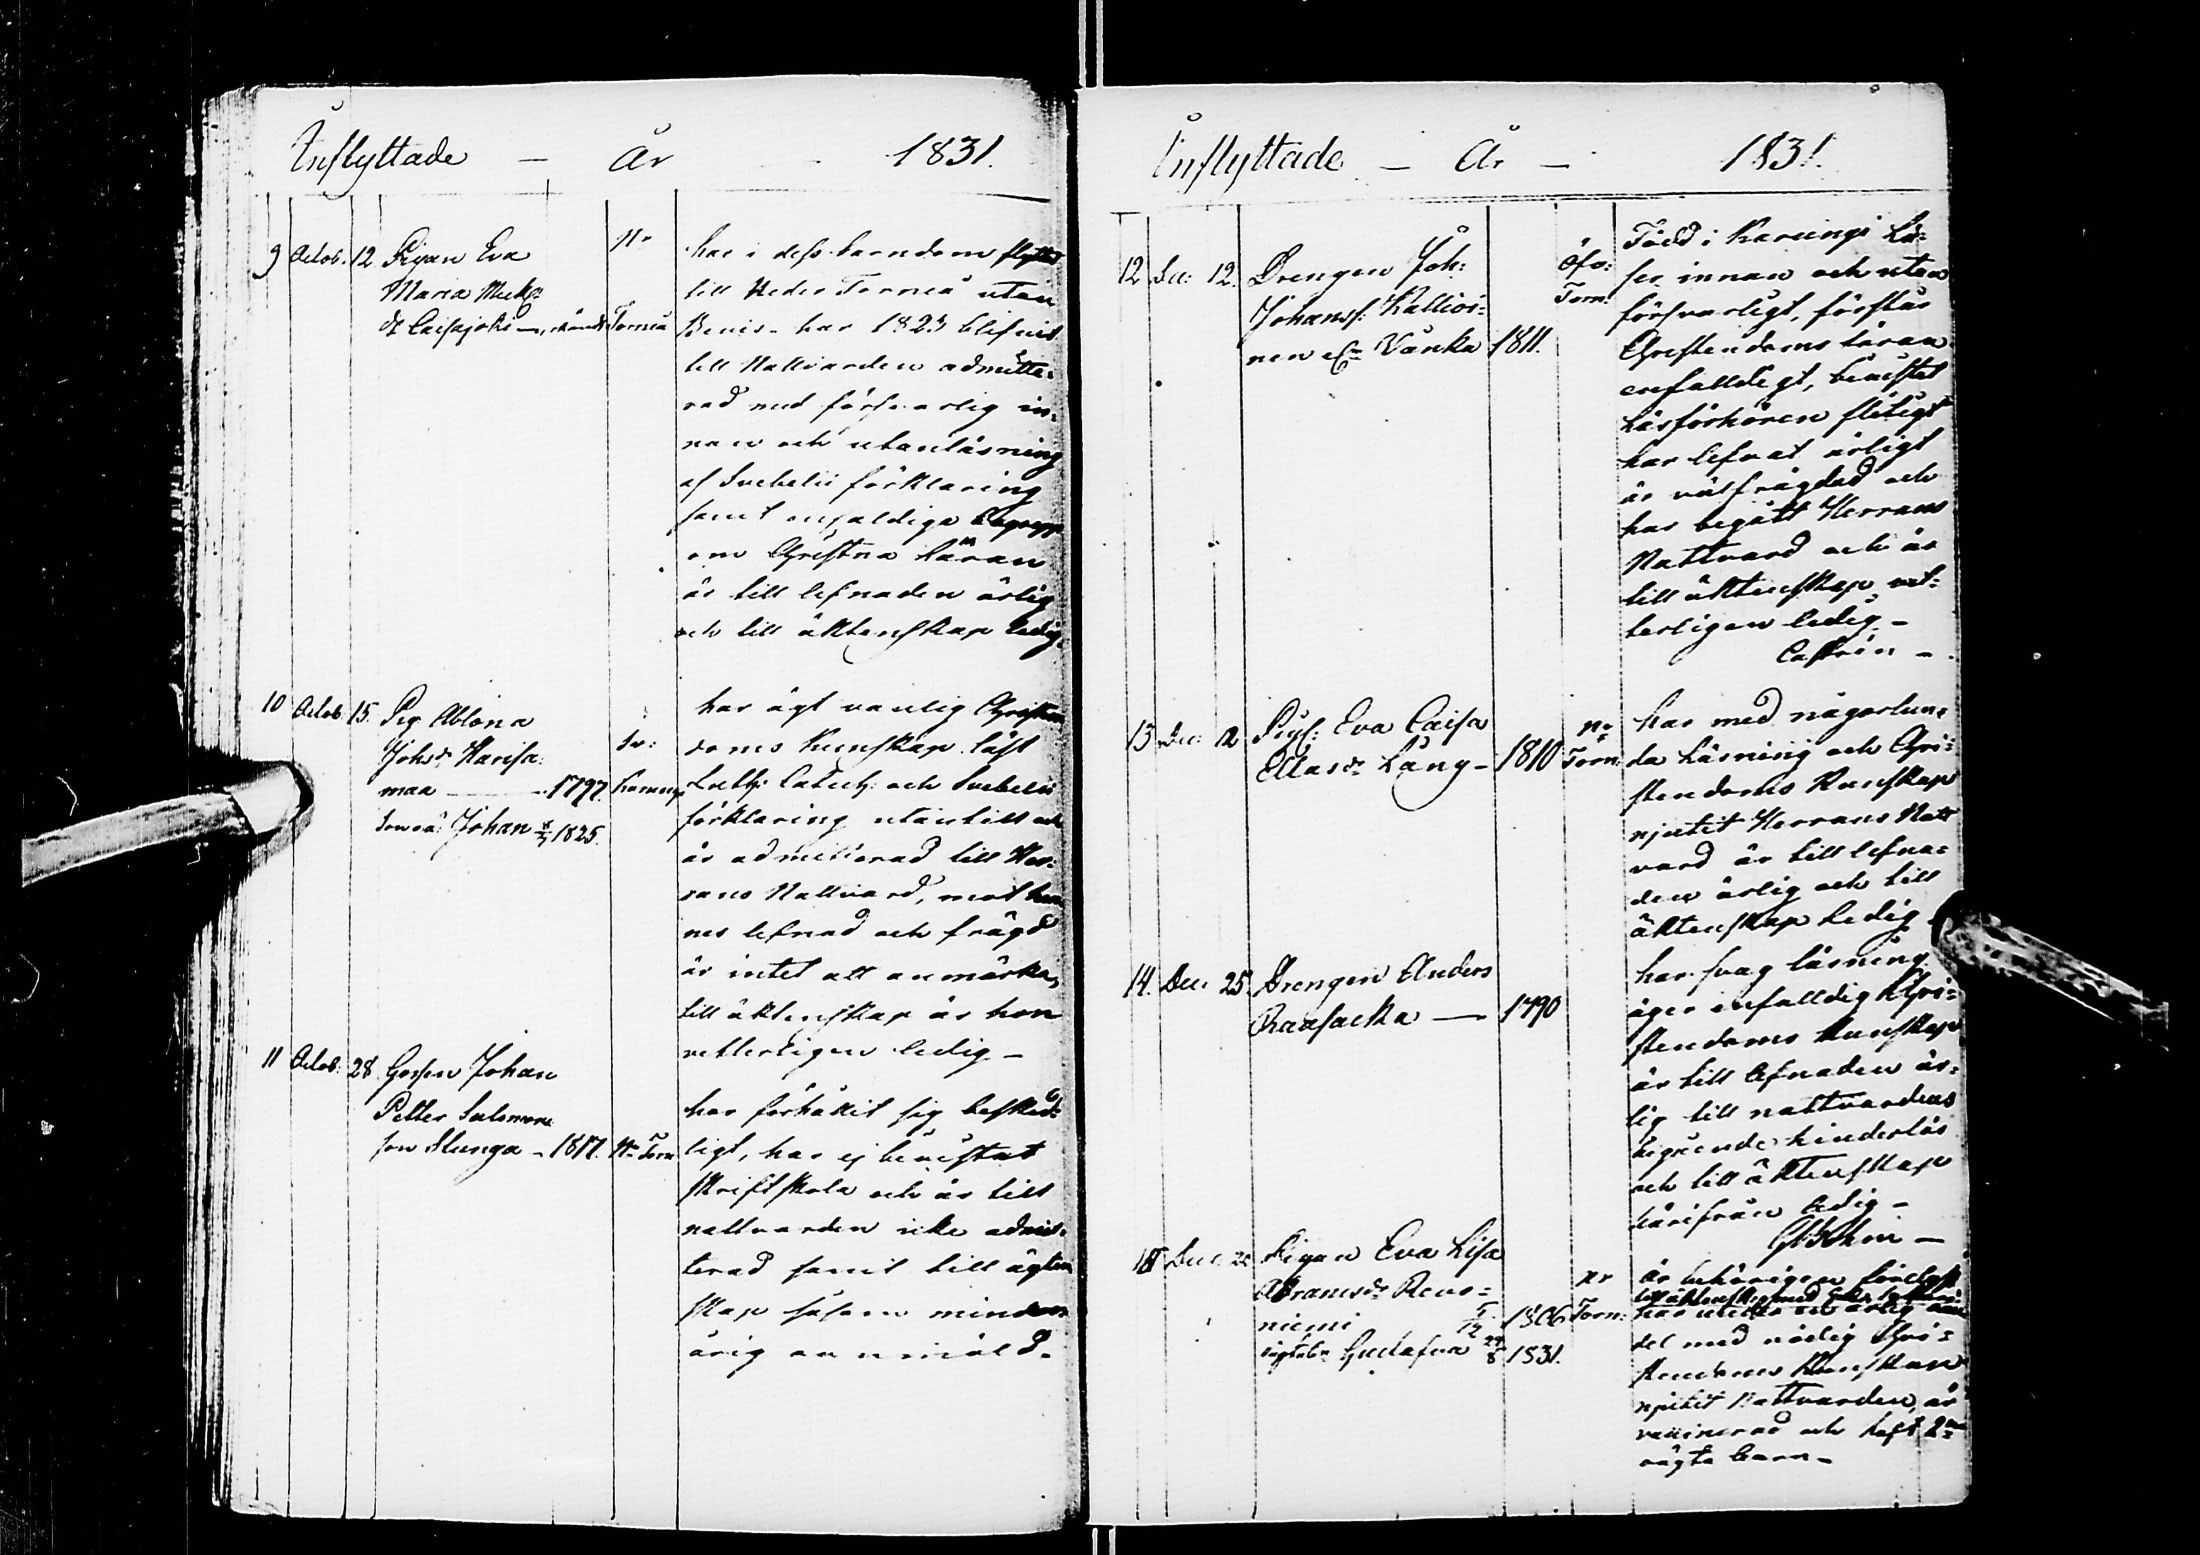 Inflyttade — År 1831.
9 Octob. 12 Pigan Eva
Maria Mick
dr Caisajoki
Nr
Torneå
har i dess barndom flyttat
till Neder Torneå utan
Bevis. har 1823 blifvit
till Nattvarden admitte-
rad med försvarlig in-
nan och utanläsning
af Svebelii förklaring
samt enfaldiga begrepp
om Christna Läran
är till lefnaden ärlig
och till äktenskap ledig.
10 Octob. 15. Pig. Ablona
Johsdr Harisa
maa — 1797.
Johan 1825.
har ägt vanlig Christen
doms kunskap läst
Luth: Catech: och Svebelii
förklaring utantill och
är admitterad till Her-
rans Nattvard, mot hen
nes lefnad och frägd
är intet att anmärka,
till äktenskap är hon
vetterligen ledig —
11 Octob. 28 Gossen Johan
Petter Salomons
son Slunga — 1817. Nr Torn
har förhållit sig beskied-
ligt, har ej bevistat
skriftskola och är till
nattvarden icke admit-
terad samt till ägten
skap såsom minder
årig anmäld.
Inflyttade — År — 1831.
12 De: 12. Drengen Joh:
Johanss: Kallioi-
nen Vänka 1811.
Öfv:
Torn:
Född i Karungi Lä-
ser innan och utan
försvarligt, förstår
Christendoms läran
enfalldigt, bevistat
Läsförhören flitigt
har lefvat ärligt
är välfrägdad och
har begått Herrans
Nattvard och är
till äktenskap vet-
terligen ledig —
Castrén —
13 Dec: 12 Pig: Eva Caisa
Eliasdr Lång — 1810
Nr
Torn:
har med någorlun-
da Läsning och Chri-
stendoms kunskap
njutit Herrans Natt
vard är till lefna-
den ärlig och till
äktenskap Ledig
14. Dec: 25. Drengen Anders
Raasacka — 1790
har svag läsning
äger enfalldig Chri-
stendoms kunskap
är till lefnaden är-
lig till nattvardens
begående hinderlös
och till äktenskap
härifrån ledig —
15 Dec: Pigan Eva Lisa
Abramsdr Revo-
niemi 1806
Gustafva 29/8 1831.
Nr
Torn:
är behörigen
del med nödig Chri-
stendoms kunskap
njutit Nattvarden, är
vaccinerad och haft 2ne
oägta barn —